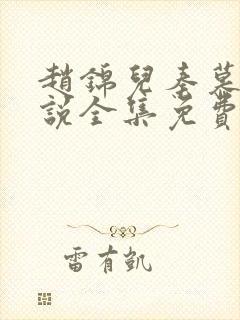 趙錦兒秦慕
說全集免費
雷有凱